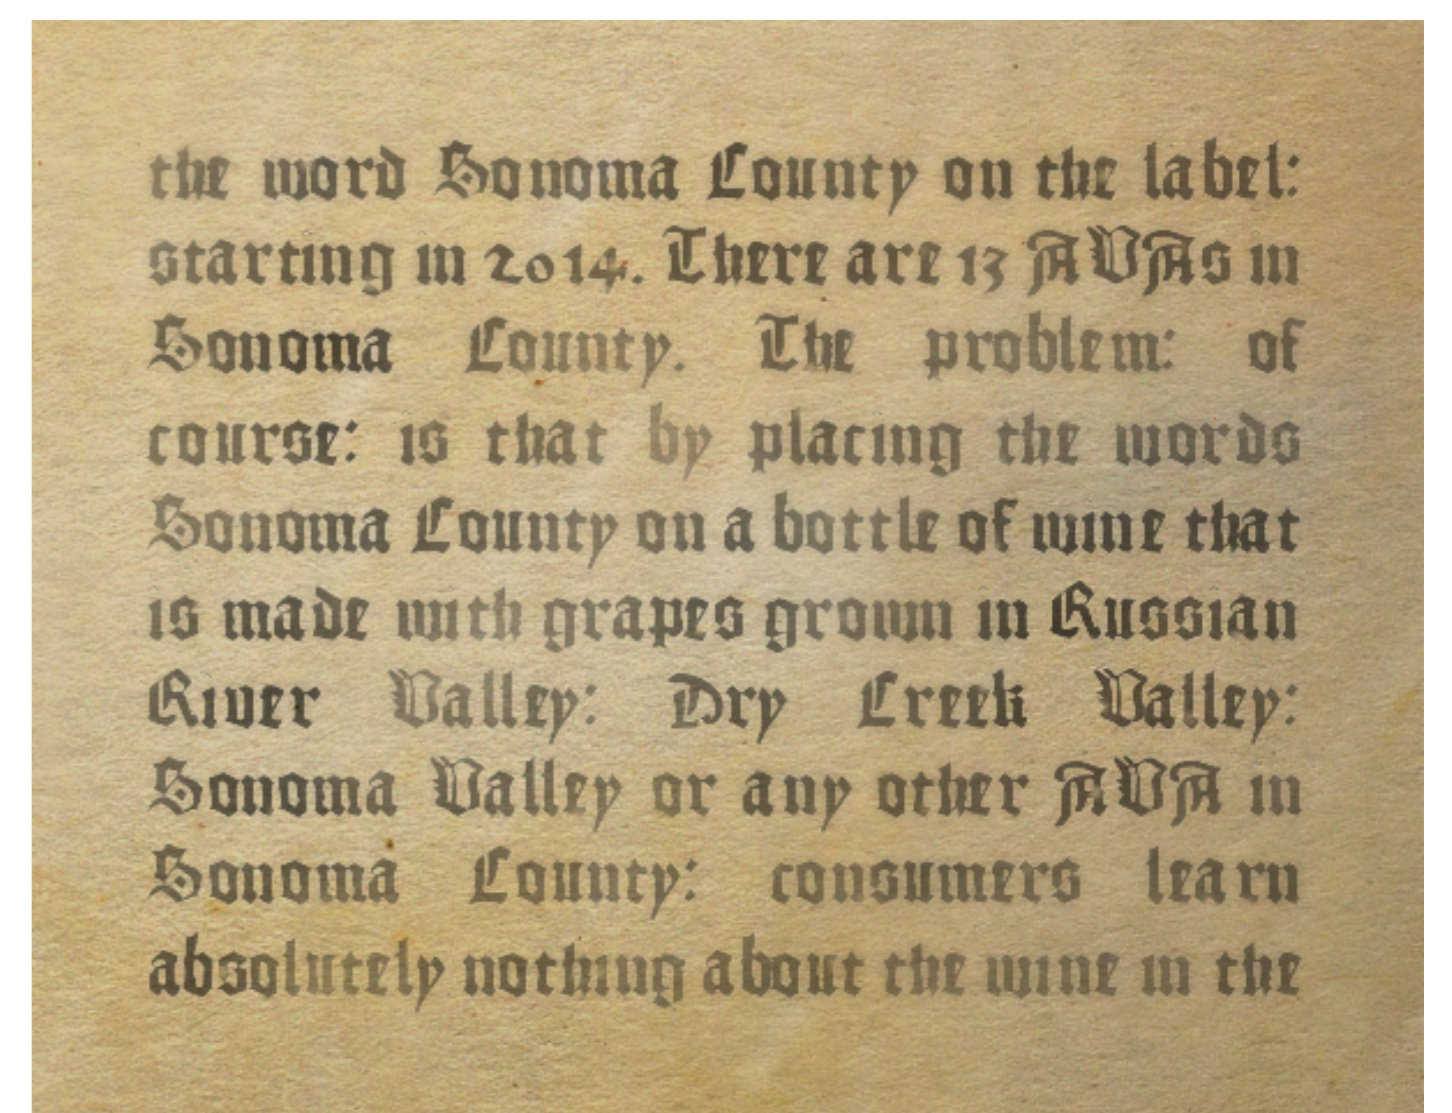 the word Sonoma County on the label:
starting in 2014. There are 13 AVAs in
Sonoma County. The problem: of
course: is that by placing the words
Sonoma County on a bottle of wine that
is made with grapes grown in Russian
River Valley: Dry Creek Valley:
Sonoma Valley or any other AVA in
Sonoma County: consumers learn
absolutely nothing about the wine in the